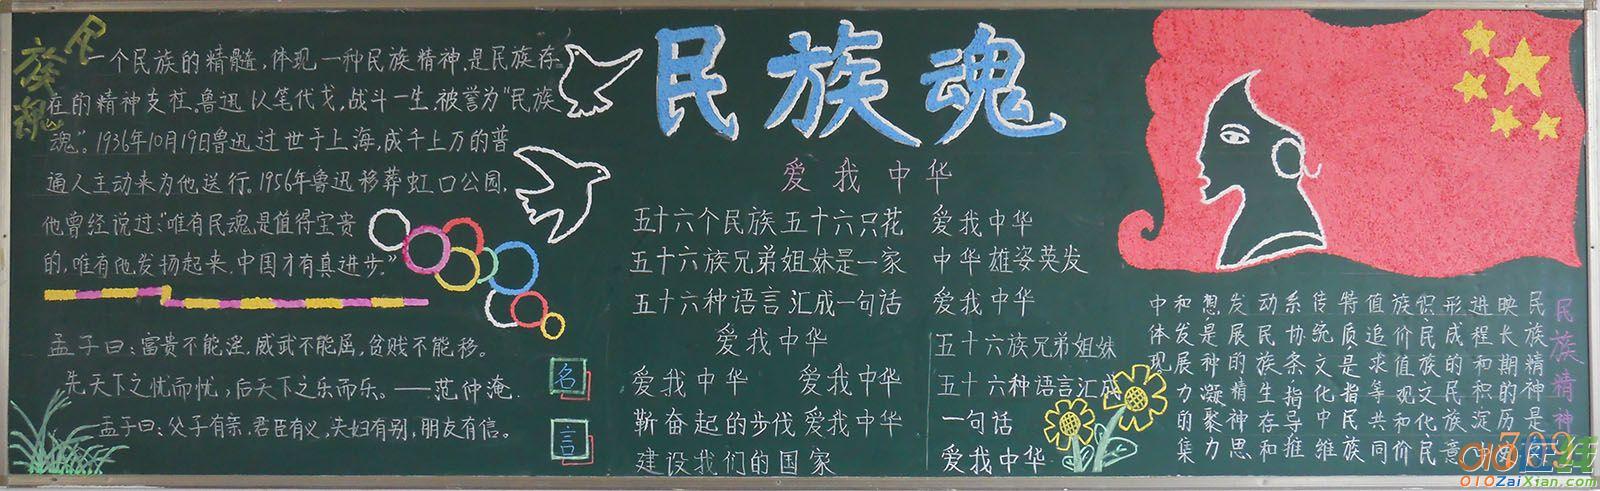 民族魂
一个民族的精髓，体现一种民族精神，是民族存
在的精神支柱。鲁迅以笔代戈，战斗一生，被誉为“民族
魂”。1936年10月19日鲁迅过世于上海，成千上万的普
通人主动来为他送行。1956年鲁迅移葬虹口公园，
他曾经说过：“唯有民魂是值得宝贵
的，唯有他发扬起来，中国才有真进步。”
孟子曰：富贵不能淫，威武不能屈，贫贱不能移。
先天下之忧而忧，后天下之乐而乐。——范仲淹
孟子曰：父子有亲，君臣有义，夫妇有别，朋友有信。
名
言
民族魂
爱我中华
五十六个民族五十六只花
五十六族兄弟姐妹是一家
五十六种语言汇成一句话
爱我中华
爱我中华 爱我中华
靳奋起的步伐爱我中华
建设我们的国家
爱我中华
中华雄姿英发
爱我中华
五十六族兄弟姐妹
五十六种语言汇成
一句话
爱我中华
民族精神
民族精神是反
映长期的历史
进程和积淀中
形成的民族意
识民族文化民
族价值观和价
值追求等共同
特质是指民族
传统文化中维
系协条指导推
动民族生存和
发展的精神思
想是神凝聚力
和发展力的集
中体现
010ZaiXian.com